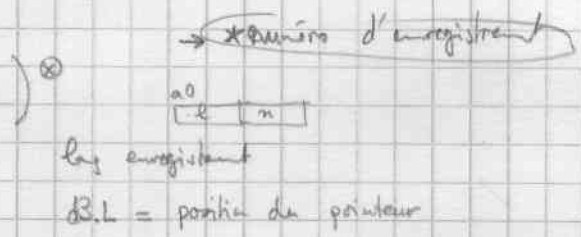 → *numéro d'enregistrement
) ⊗
a0
l n
long enregistrement
d3.L = position du pointeur